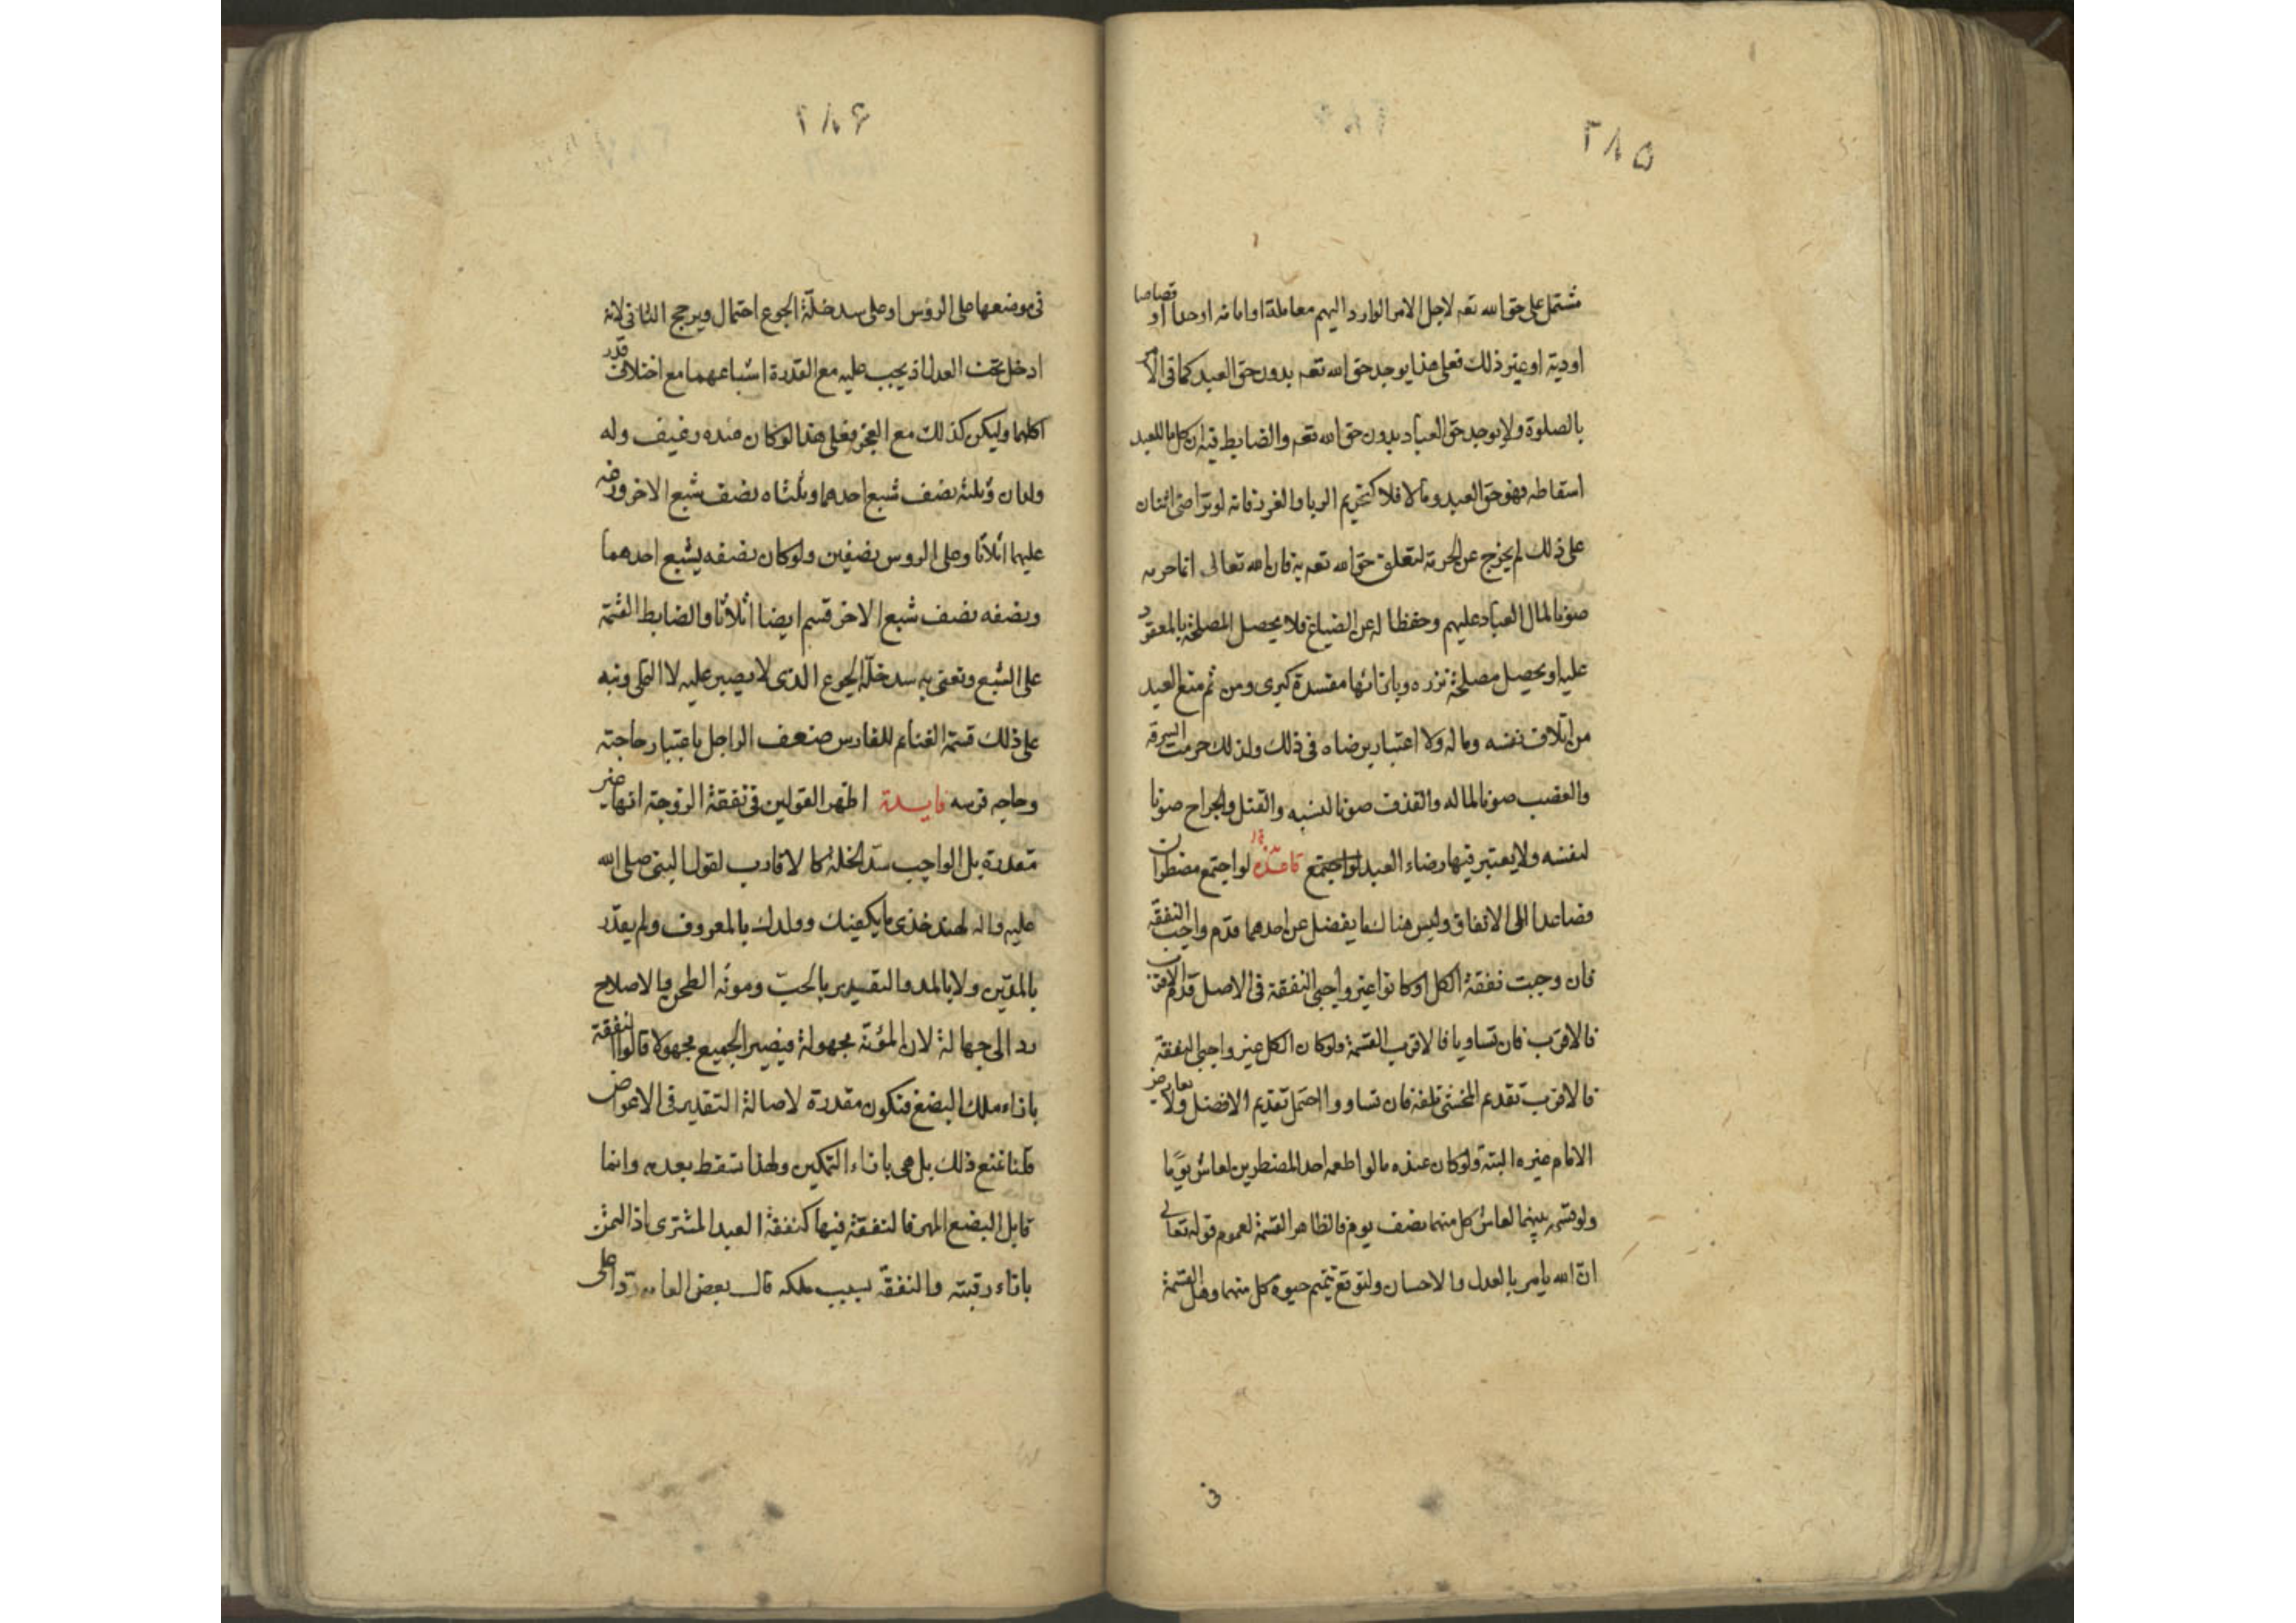 ٢٨٥
مشتمل على حق الله تعه لاجل الامر الوارد اليهم معاملة او امانه او حدا او قصاصا
او دية او غير ذلك فعلى هذا يوجد حق الله تعه بدون حق العبد كما فى الامر
بالصلوة ولا يوجد حق العباد بدون حق الله تعه والضابط فيه ان كل ما للعبد
اسقاطه فهو حق العبد وما لا فلا كتحريم الربا والغرر فانه لو تراضى اثنان
على ذلك لم يخرج عن الحرمة لتعلق حق الله تعه به فان الله تعالى انما حرمه
صونا لمال العباد عليهم وحفظا له عن الضياع فلا يحصل المصلحة بالمعقود
عليه او يحصل مصلحة نزره وبازائها مفسدة كبرى ومن ثم منع العبد
من اتلاف نفسه وماله ولا اعتبار برضاه فى ذلك ولذلك حرمت السرقة
والغصب صونا لماله والقذف صونا لنسبه والقتل والجراح صونا
لنفسه ولا يعتبر فيها رضاء العبد لو اجتمع قاعدة لو اجتمع مضطران
فصاعدا الى الانفاق وليس هناك ما يفضل عن احدهما قدم واجب النفقة
فان وجبت نفقة الكل او كانوا غير واجبى النفقة فى الاصل قدم الاقرب
فالاقرب فان تساويا فالاقرب القسمة ولو كان الكل غير واجبى النفقة
فالاقرب تقديم المخشى تلفه فان تساووا احتمل تقديم الافضل ولا يعارض
الامام غيره البتة ولو كان عنده ما لو اطعمه احد المضطرين لعاش يوما
ولو قسمه بينهما لعاش كل منهما نصف يوم فالظاهر القسمة لعموم قوله تعالى
ان الله يامر بالعدل والاحسان ولتوقع تتميم حيوة كل منهما وهل القسمة
فى
٢٨۶
فى موضعها على الروس او على سد خلة الجوع احتمال ويرجح الثانى لانه
ادخل تحت العدل اذ يجب عليه مع القدرة اشباعهما مع اختلاف قدر
اكلهما وليكن كذلك مع العجز فعلى هذا لو كان عنده رغيف وله
ولدان وثلثه نصف شبع احدهما وثلثاه نصف شبع الاخر وزعه
عليهما اثلاثا وعلى الروس نصفين ولو كان نصفه يشبع احدهما
ونصفه نصف شبع الاخر قسم ايضا اثلاثا والضابط القسمة
على الشبع ونعنى به سد خلة الجوع الذى لا يصبر عليه لا التملى ونبه
على ذلك قسمة الغنائم للفارس ضعف الراجل باعتبار حاجته
وحاجه فرسه فايدة اظهر القولين فى نفقة الزوجة انها غير
مقدرة بل الواجب سد الخلة كالاقارب لقول النبى صلى الله
عليه واله لهند خذى ما يكفيك وولدك بالمعروف ولم يقدر
بالمدين ولا بالمد والتقدير بالحب ومونه الطحن والاصلاح
رد الى جهالة لان المؤنة مجهولة فيصير الجميع مجهولا قالوا النفقة
بازاء ملك البضع فتكون مقدرة لاصالة التقدير فى الاعواض
قلنا نمنع ذلك بل هى بازاء التمكين ولهذا تسقط بعدمه وانما
قابل البضع المهر فالنفقة فيها كنفقة العبد المشترى اذ الثمن
بازاء رقبته والنفقة بسبب ملكه قال بعض العامه ردا على